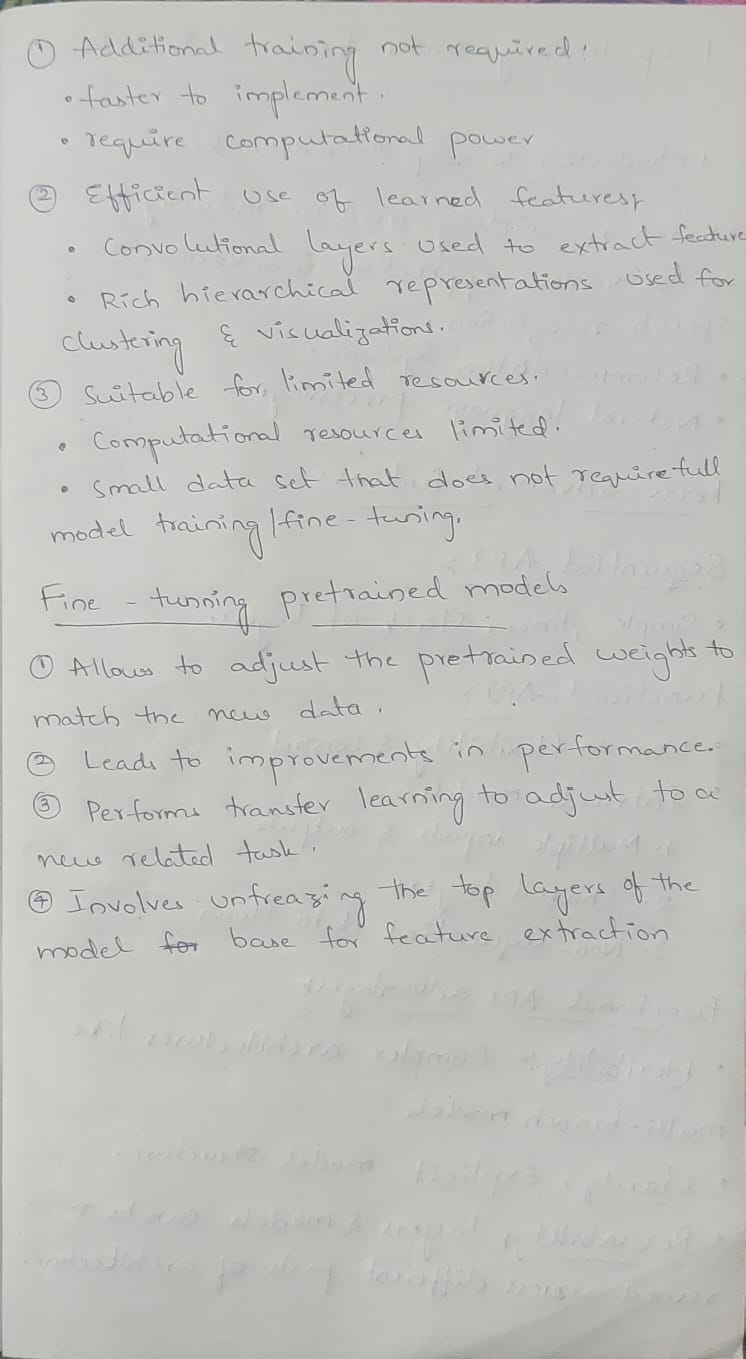 ① Additional training not required:
• faster to implement.
• require computational power
② Efficient use of learned features,
• Convolutional layers used to extract feature
• Rich hierarchical representations used for
clustering & visualizations.
③ Suitable for limited resources.
• Computational resources limited.
• Small data set that does not require full
model training/fine-tuning.
Fine-tunning pretrained models
① Allows to adjust the pretrained weights to
match the new data.
② Leads to improvements in performance.
③ Performs transfer learning to adjust to a
new related task.
④ Involves unfreazing the top layers of the
model for base for feature extraction